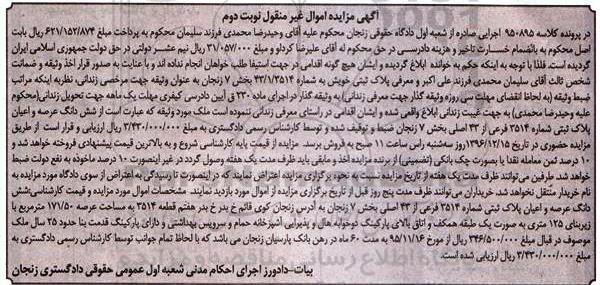 آگهی مزایده اموال غیر منقول نوبت دوم
در پرونده کلاسه ۹۵۰۸۹۵ اجرایی صادره از شعبه اول دادگاه حقوقی زنجان محکوم علیه آقای وحیدرضا محمدی فرزند سلیمان محکوم به پرداخت مبلغ ۶۲۱/۱۵۲/۸۷۴ ریال بابت
اصل محکوم به بانضمام خسارت تاخیر و هزینه دادرسی در حق محکوم له آقای علیرضا کردلو و مبلغ ۳۱/۰۵۷/۰۰۰ ریال نیم عشر دولتی در حق دولت جمهوری اسلامی ایران
گردیده است. فلذا با توجه به اینکه حکم به خوانده ابلاغ گردیده و ایشان هیچ گونه اقدامی در جهت استیفا طلب خواهان انجام نداده اند و با عنایت به صدور قرار اخذ وثیقه و ضمانت
شخص ثالث آقای سلیمان محمدی فرزند علی اکبر و معرفی پلاک ثبتی خویش به شماره ۴۳/۱/۳۵۱۴ بخش ۷ زنجان به عنوان وثیقه جهت مرخصی زندانی، نظربه اینکه مراتب
ضبط وثیقه (به لحاظ انقضای مهلت سی روزه وثیقه گذار جهت معرفی زندانی) به وثیقه گذار در اجرای ماده ۲۳۰ ق آیین دادرسی کیفری مهلت یک ماهه جهت تحویل زندانی(محکوم
علیه وحیدرضا محمدی) به جهت غیبت زندانی ابلاغ واقعی شده و ایشان اقدامی در راستای معرفی زندانی ننموده است ملک مورد وثیقه که عبارت است از شش دانگ عرصه و اعیان
پلاک ثبتی شماره ۳۵۱۴ فرعی از ۴۳ اصلی بخش ۷ زنجان ضبط و توقیف شده و توسط کارشناس رسمی دادگستری به مبلغ ۳/۴۳۰/۰۰۰/۰۰۰ ریال ارزیابی و قرار است از طریق
مزایده حضوری در تاریخ ۱۳۹۶/۱۲/۱۵ روز سه‌شنبه راس ساعت ۱۱ صبح به فروش برسد. مزایده از قیمت پایه کارشناسی شروع و به بالاترین قیمت پیشنهادی فروخته خواهد شد و
۱۰ درصد ثمن معامله نقدا یا بصورت چک بانکی (تضمینی) از برنده مزایده اخذ و مابقی باید ظرف مدت یک هفته وصول گردد در غیر اینصورت ۱۰ درصد ماخوذه به نفع دولت ضبط
خواهد شد. طرفین می‌توانند ظرف مدت یک هفته از تاریخ مزایده نسبت به نحوه برگزاری مزایده اعتراض نمایند که در اینصورت تا رسیدگی به اعتراض از سوی دادگاه مورد مزایده به
نام خریدار منتقل نخواهد شد. خریداران می‌توانند ظرف مدت پنج روز قبل از تاریخ برگزاری مزایده از اموال مورد بازدید نمایند. مشخصات اموال مورد مزایده و قیمت کارشناسی:شش
دانگ عرصه و اعیان پلاک ثبتی شماره ۳۵۱۴ فرعی از ۴۳ اصلی بخش ۷ زنجان به آدرس زنجان کوی قائم خ بدر هفتم قطعه ۳۵۱۴ به مساحت عرصه ۱۷۱/۵۰ مترمربع با
زیربنای ۱۲۵ متری به صورت یک طبقه همکف و اتاق بالای پارکینگ دوخوابه هال و پذیرایی آشپزخانه حمام و سرویس بهداشتی و دارای پارکینگ قدمت بنا حدود ۲۵ سال ملک
موصوف در قبال مبلغ ۳۴۶/۵۰۰/۰۰۰ ریال از مورخ ۹۵/۱۱/۱۶ به مدت ۶۰ ماه در رهن بانک پارسیان زنجان می باشد که با لحاظ تمام جوانب توسط کارشناس رسمی دادگستری به
مبلغ ۳/۴۳۰/۰۰۰/۰۰۰ ریال ارزیابی شده است.
بیات-دادورز اجرای احکام مدنی شعبه اول عمومی حقوقی دادگستری زنجان